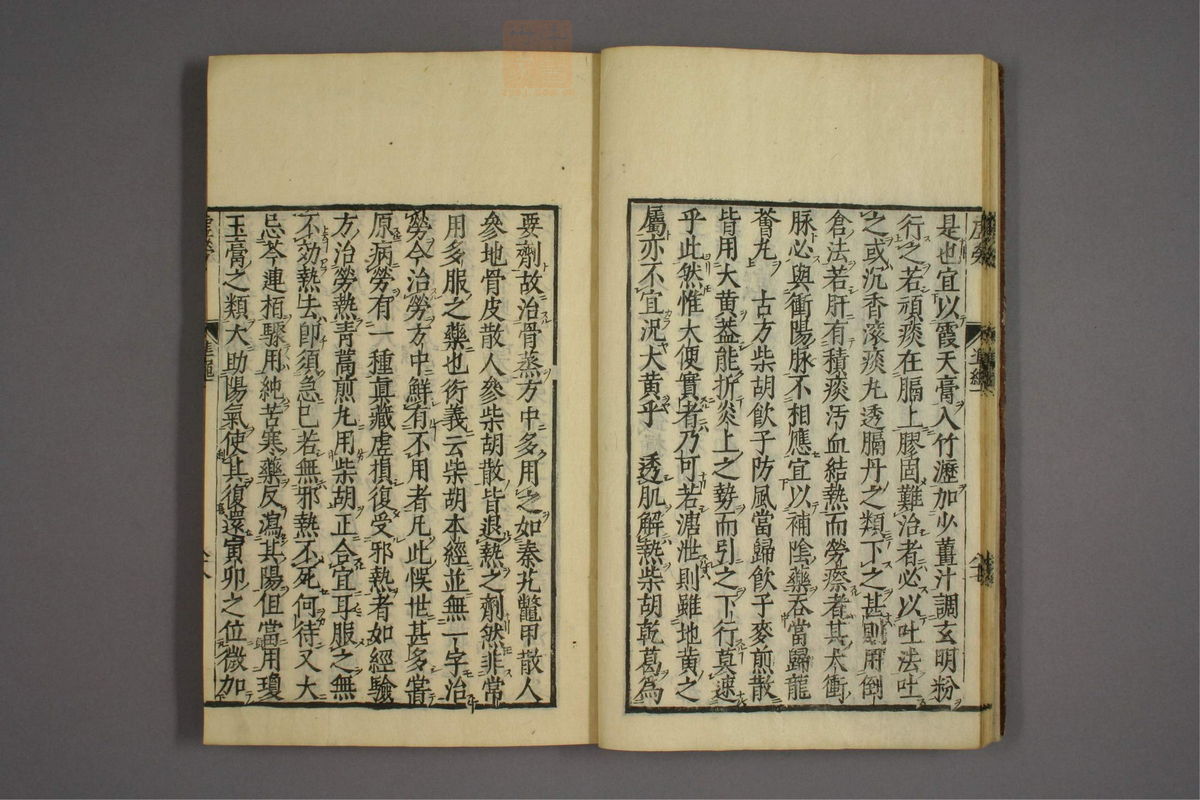 是也宜以霞天膏入竹瀝加少薑汁調玄明粉
行之若頑痰在膈上膠固難治者必以吐法吐
之或沉香滚痰丸透膈丹之類下之甚則用倒
倉法若肝有積痰汚血結熱而勞瘵者其太衝
脉必與衝陽脉不相應宜以補陰藥吞當歸龍
薈丸 古方柴胡飲子防風當歸飲子麥煎散
皆用大黄葢能折炎上之勢而引之下行莫速
乎此然惟大便實者乃可若溏泄則雖地黄之
屬亦不宜況大黄乎 透肌解熱柴胡乾葛為
要劑故治骨蒸方中多用之如秦艽鼈甲散人
參地骨皮散人參柴胡散皆退熱之劑然非常
用多服之藥也衍義云柴胡本經並無一字治
勞今治勞方中鮮有不用者凡此悞世甚多嘗
原病勞有一種真藏虚損復受邪熱者如經驗
方治勞熱青蒿煎丸用柴胡正合宜耳服之無
不効熱去卽須急已若無邪熱不死何待又大
忌芩連栢驟用純苦寒藥反瀉其陽但當用瓊
玉膏之類大助陽氣使其復還寅卯之位微加